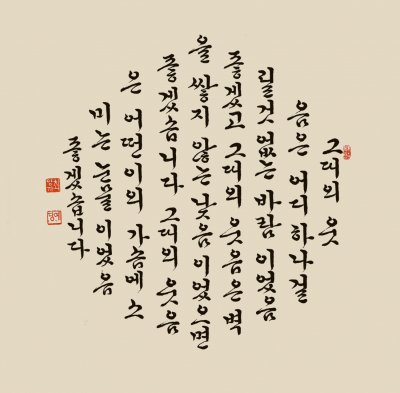 그대의 웃
음은 어디 하나 걸
릴것 없는 바람 이었음
좋겠고 그대의 웃음은 벽
을 쌓지 않는 낮음 이었으면
좋겠습니다 그대의 웃음
은 어떤이의 가슴에 스
미는 눈물 이었음
좋겠습니다